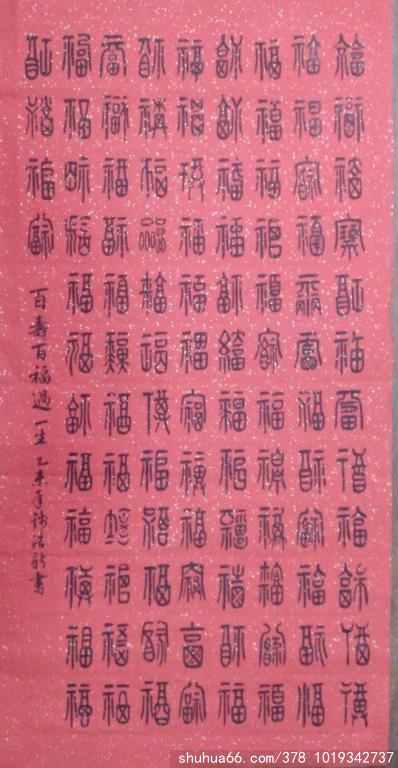 福福福福福福福福福福福福
福福福福福福福福福福福福
福福福福福福福福福福福福
福福福福福福福福福福福福
福福福福福福福福福福福福
福福福福福福福福福福福福
福福福福福福福福福福福福
福福福福福福福福福福福福
福福福福
百壽百福過一生 乙未年 書
shuhua66.com/378 1019342737